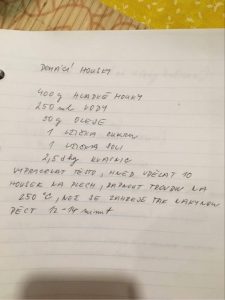 DOMÁCÍ HOUSKY
400 g HLADKÉ MOUKY
250 ml VODY
50 g OLEJE
1 LŽIČKA CUKRU
1 LŽIČKA SOLI
2,5 dkg KVASNIC
VYPRACOVAT TĚSTO, HNED UDĚLAT 10
HOUSEK NA PLECH, ZAPNOUT TROUBU NA
250 °C, NEŽ SE ZAHŘEJE TAK NAKYNOU
PÉCT 12-14 minut